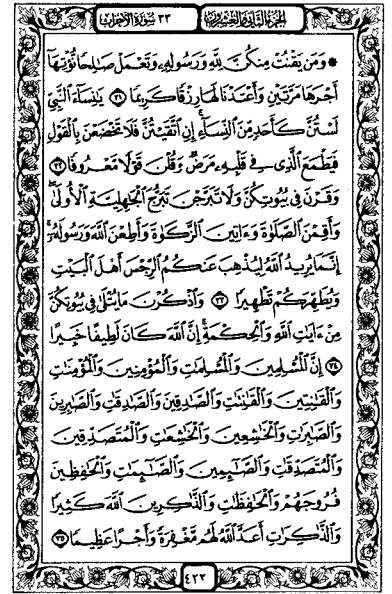 الجزء الثاني والعشرون ٣٣ سورة الأحزاب
۞ وَمَن يَقْنُتْ مِنكُنَّ لِلَّهِ وَرَسُولِهِۦ وَتَعْمَلْ صَٰلِحًا نُّؤْتِهَآ
أَجْرَهَا مَرَّتَيْنِ وَأَعْتَدْنَا لَهَا رِزْقًا كَرِيمًا ٣١ يَٰنِسَآءَ ٱلنَّبِىِّ
لَسْتُنَّ كَأَحَدٍ مِّنَ ٱلنِّسَآءِ إِنِ ٱتَّقَيْتُنَّ فَلَا تَخْضَعْنَ بِٱلْقَوْلِ
فَيَطْمَعَ ٱلَّذِى فِى قَلْبِهِۦ مَرَضٌ وَقُلْنَ قَوْلًا مَّعْرُوفًا ٣٢
وَقَرْنَ فِى بُيُوتِكُنَّ وَلَا تَبَرَّجْنَ تَبَرُّجَ ٱلْجَٰهِلِيَّةِ ٱلْأُولَىٰ
وَأَقِمْنَ ٱلصَّلَوٰةَ وَءَاتِينَ ٱلزَّكَوٰةَ وَأَطِعْنَ ٱللَّهَ وَرَسُولَهُۥٓ
إِنَّمَا يُرِيدُ ٱللَّهُ لِيُذْهِبَ عَنكُمُ ٱلرِّجْسَ أَهْلَ ٱلْبَيْتِ
وَيُطَهِّرَكُمْ تَطْهِيرًا ٣٣ وَٱذْكُرْنَ مَا يُتْلَىٰ فِى بُيُوتِكُنَّ
مِنْ ءَايَٰتِ ٱللَّهِ وَٱلْحِكْمَةِ إِنَّ ٱللَّهَ كَانَ لَطِيفًا خَبِيرًا
٣٤ إِنَّ ٱلْمُسْلِمِينَ وَٱلْمُسْلِمَٰتِ وَٱلْمُؤْمِنِينَ وَٱلْمُؤْمِنَٰتِ
وَٱلْقَٰنِتِينَ وَٱلْقَٰنِتَٰتِ وَٱلصَّٰدِقِينَ وَٱلصَّٰدِقَٰتِ وَٱلصَّٰبِرِينَ
وَٱلصَّٰبِرَٰتِ وَٱلْخَٰشِعِينَ وَٱلْخَٰشِعَٰتِ وَٱلْمُتَصَدِّقِينَ
وَٱلْمُتَصَدِّقَٰتِ وَٱلصَّٰٓئِمِينَ وَٱلصَّٰٓئِمَٰتِ وَٱلْحَٰفِظِينَ
فُرُوجَهُمْ وَٱلْحَٰفِظَٰتِ وَٱلذَّٰكِرِينَ ٱللَّهَ كَثِيرًا
وَٱلذَّٰكِرَٰتِ أَعَدَّ ٱللَّهُ لَهُم مَّغْفِرَةً وَأَجْرًا عَظِيمًا ٣٥
٤٢٢